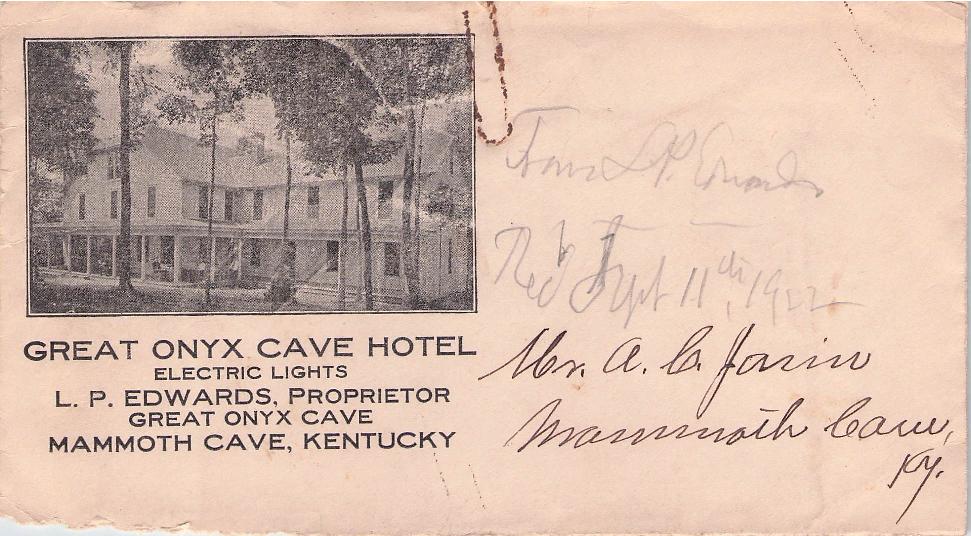 GREAT ONYX CAVE HOTEL
ELECTRIC LIGHTS
L. P. EDWARDS, PROPRIETOR
GREAT ONYX CAVE
MAMMOTH CAVE, KENTUCKY
From L. P. Edwards
Rec'd Sept 11th, 1922
Mr. A. C. Janin
Mammoth Cave,
Ky.